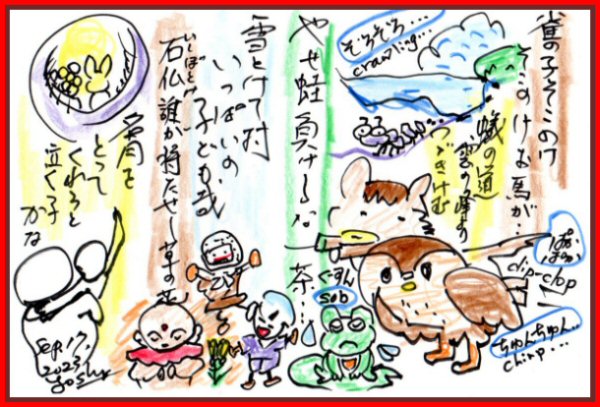 雀の子そこのけ
そこのけお馬が…
蟻の道
雲の峰より
つづきけむ
ぞろぞろ…
crawling…
やせ蛙負けるな一茶…
雪とけて村
いっぱいの
子ども哉
いしぼとけ
石仏誰が持たせし草の花
名月を
とって
くれろと
泣く子
かな
ぱか
ぱか
clip-clop
ちゅんちゅん…
chirp…
ぐすん
sob
Sep.17,
2023